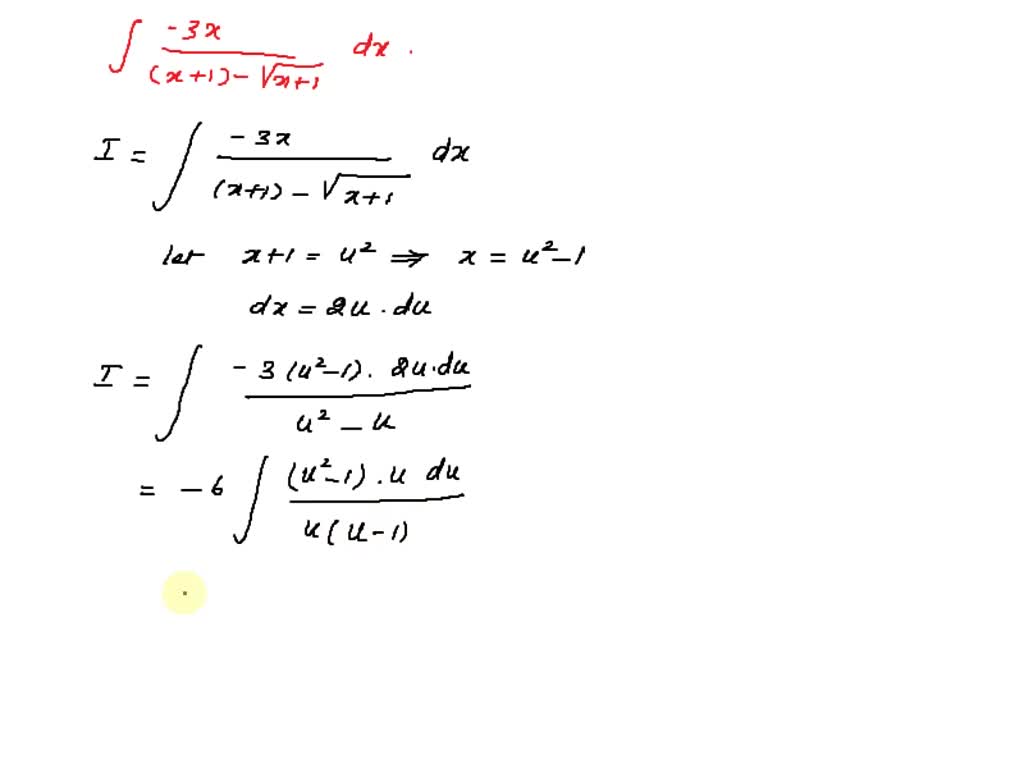 ∫ -3x / ((x+1) - √(x+1)) dx .
I = ∫ -3x / ((x+1) - √(x+1)) dx
let x+1 = u² ⇒ x = u² - 1
dx = 2u . du
I = ∫ -3 (u² - 1) . 2u . du / (u² - u)
= -6 ∫ (u² - 1) . u du / (u (u - 1))